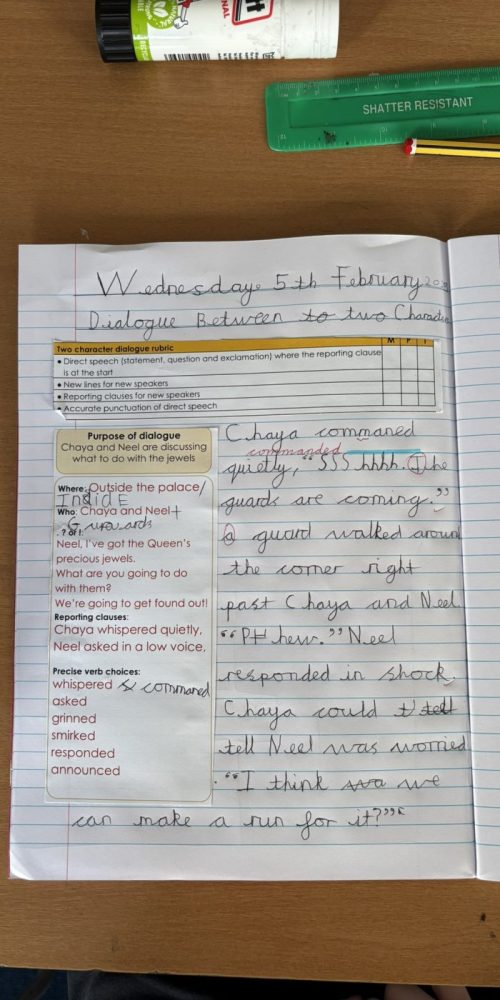 SHATTER RESISTANT
Wednesday 5th February
Dialogue Between to two
Two character dialogue rubric
M P I
• Direct speech (statement, question and exclamation) where the reporting clause
is at the start
• New lines for new speakers
• Reporting clauses for new speakers
• Accurate punctuation of direct speech
Purpose of dialogue
Chaya and Neel are discussing
what to do with the jewels
Where: Outside the palace/
IndidE
Who: Chaya and Neel+
. ? or !:
Neel, I've got the Queen's
precious jewels.
What are you going to do
with them?
We're going to get found out!
Reporting clauses:
Chaya whispered quietly,
Neel asked in a low voice,
Precise verb choices:
whispered & commaned
asked
grinned
smirked
responded
announced
Chaya commaned
commanded
quietly, "SSS hhhh. The
guards are coming."
a guard walked around
the corner right
past Chaya and Neel.
"Phew." Neel
responded in shock.
Chaya could tell
tell Neel was worried
"I think we
can make a run for it?"